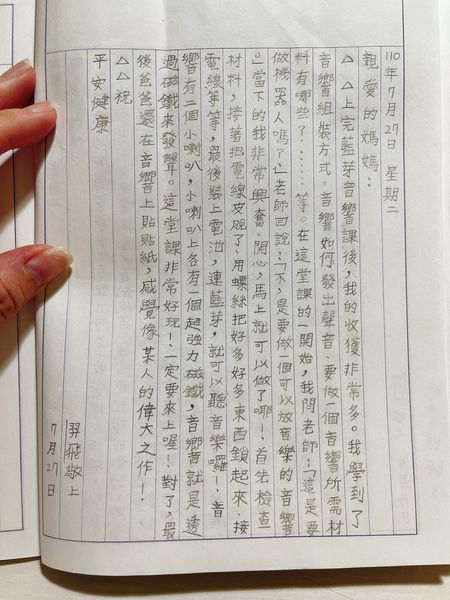 110年7月27日 星期二
親愛的媽媽：
△△上完藍芽音響課後，我的收獲非常多。我學到了
音響組裝方式、音響如何發出聲音、要做一個音響所需材
料有哪些？……等。在這堂課的一開始，我問老師：「這是要
做機器人嗎？」老師回說：「不，是要做一個可以放音樂的音響
。」當下的我非常興奮、開心，馬上就可以做了耶！首先檢查
材料，接著把電線皮脫了，用螺絲把好多好多東西鎖起來、接
電線等等，最後裝上電池，連藍芽，就可以聽音樂囉！音
響有二個小喇叭，小喇叭上各有一個超強力磁鐵，音響就是透
過磁鐵來發聲。這堂課非常好玩！一定要來上喔！對了，最
後爸爸還在音響上貼貼紙，感覺像某人的偉大之作！
△△祝
平安健康
羿飛敬上
7月27日